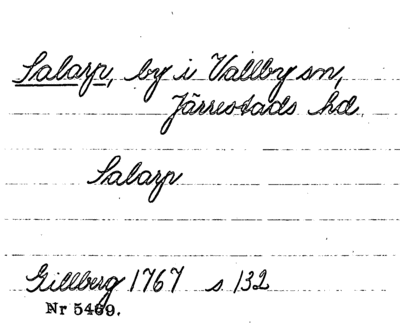 Salarp, by i Vallby sn,
Järrestads hd.
Salarp
Gillberg 1767 s 132
Nr 5469.